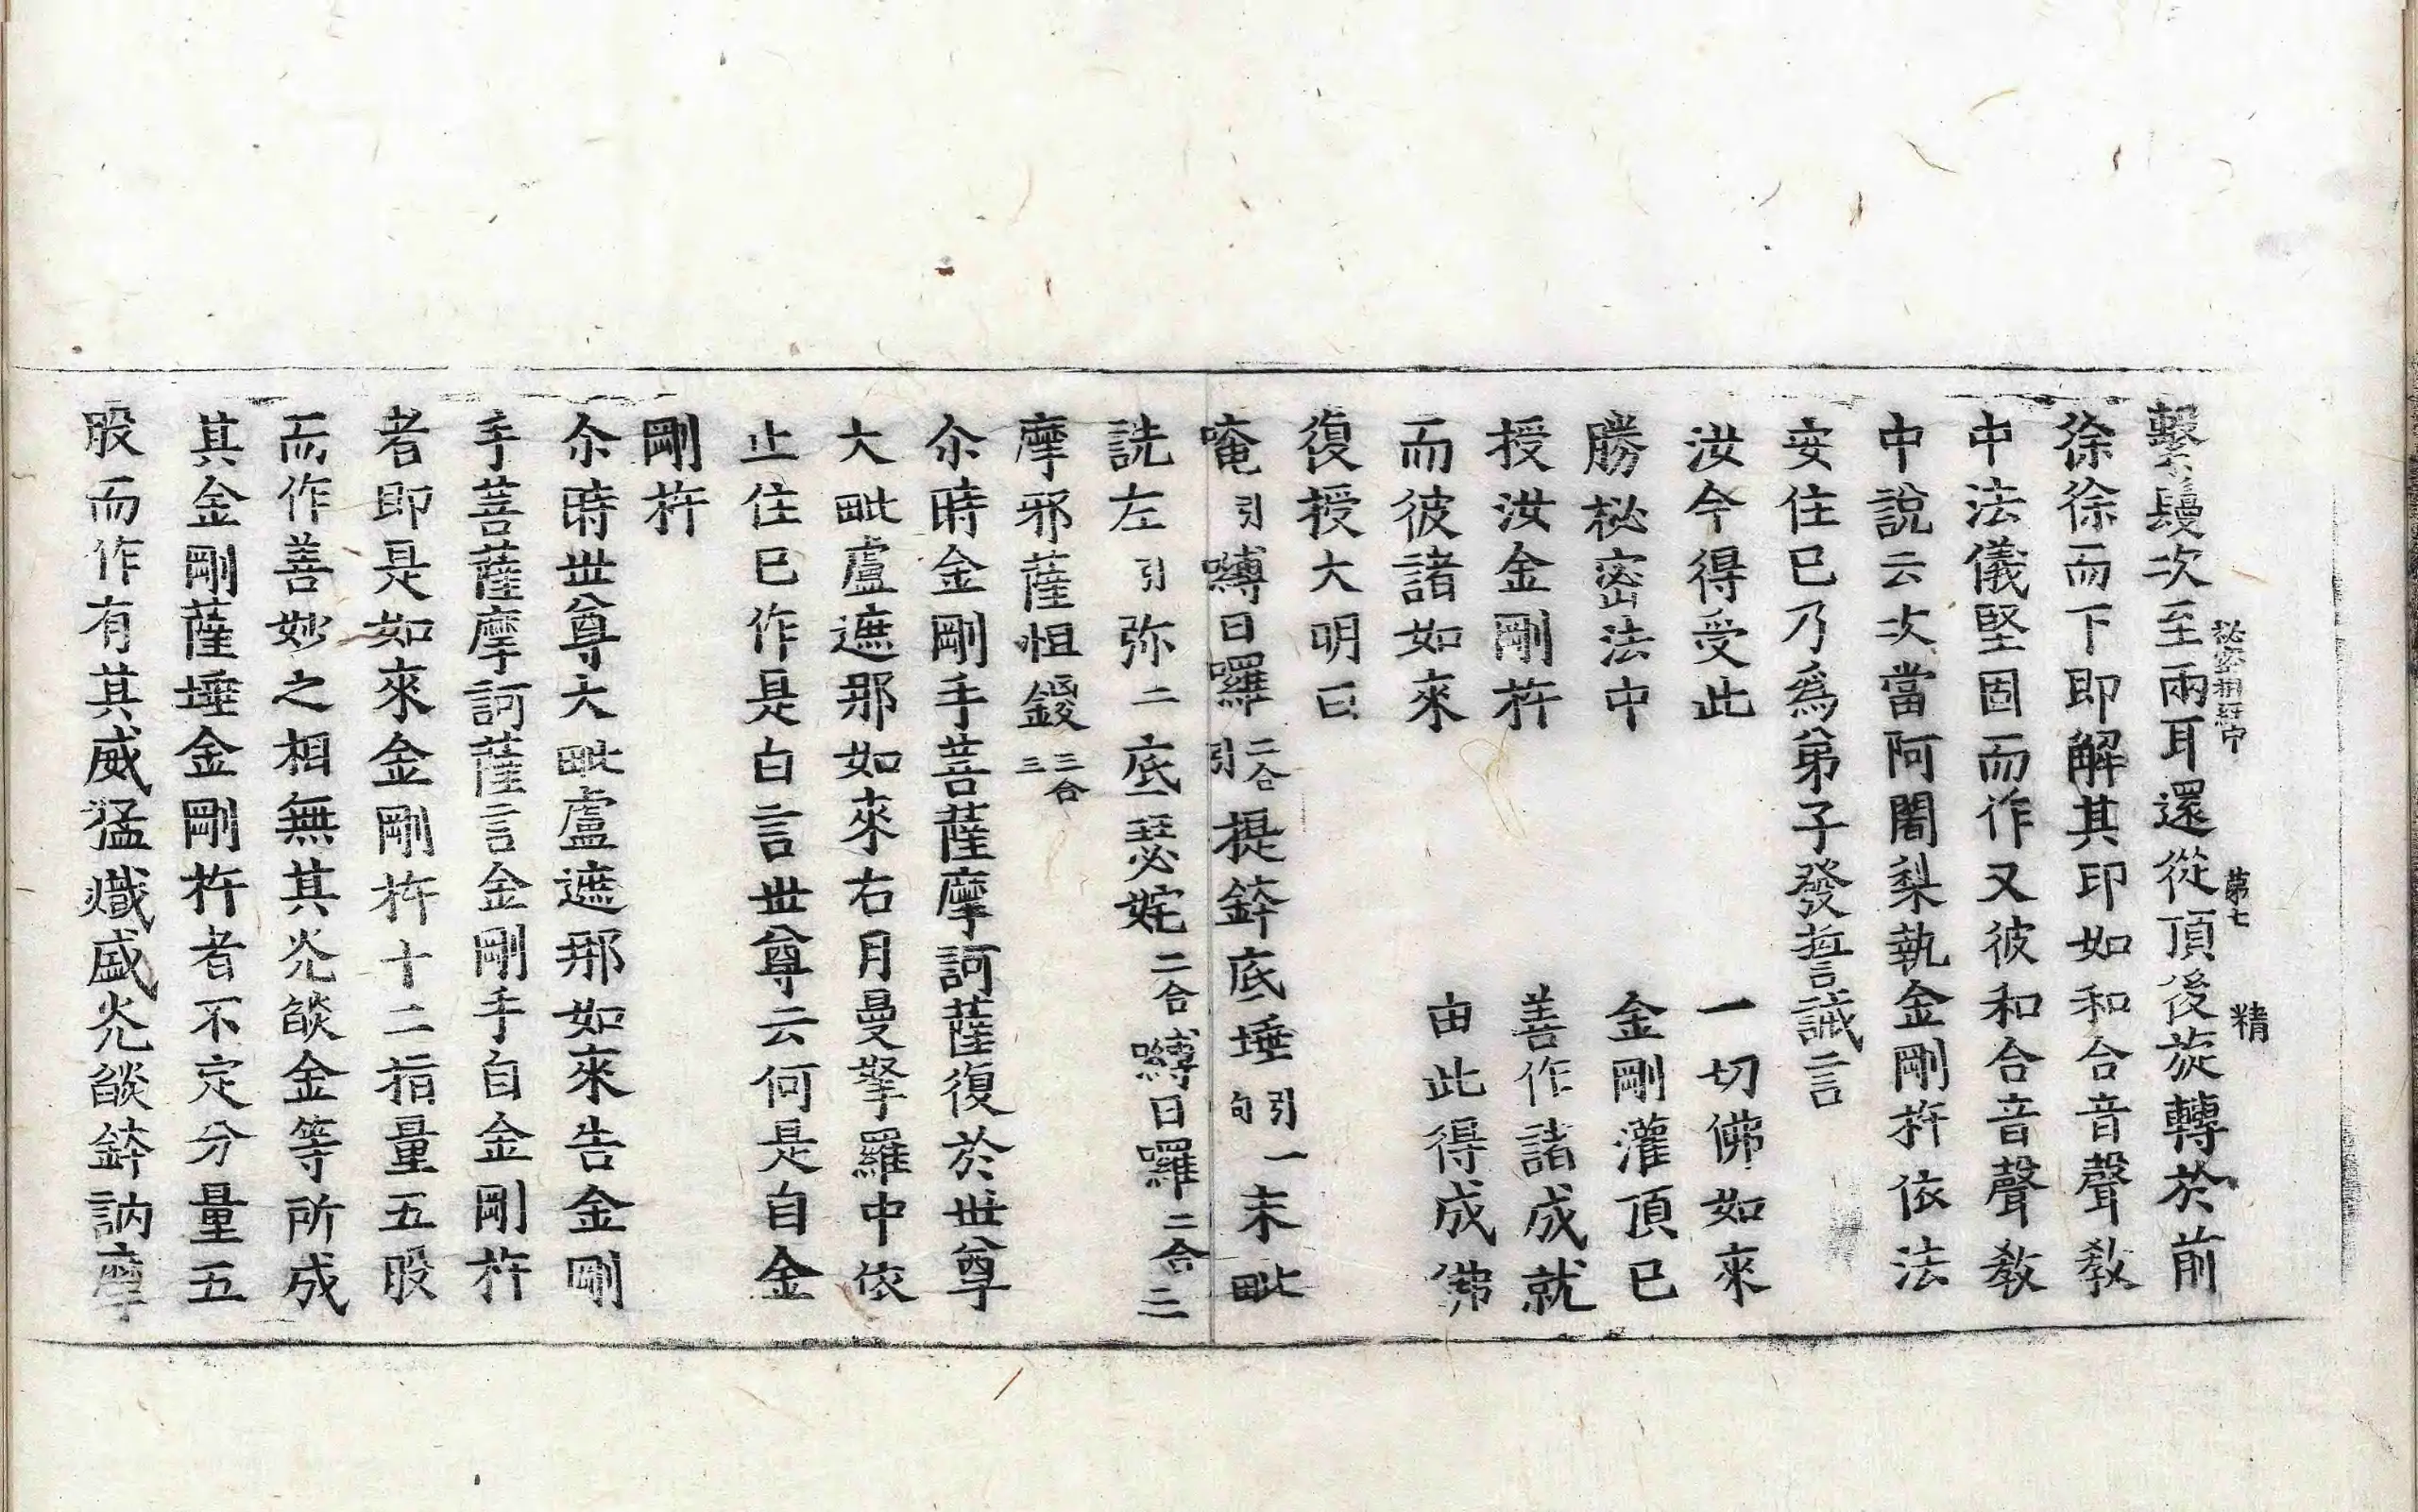 秘密相經中 第七 精
繫鬘次至兩耳還從頂後旋轉於前
徐徐而下即解其印如和合音聲教
中法儀堅固而作又彼和合音聲教
中說云次當阿闍梨執金剛杵依法
安住已乃為弟子發誓誡言
汝今得受此 一切佛如來
勝秘密法中 金剛灌頂已
授汝金剛杵 善作諸成就
而彼諸如來 由此得成佛
復授大明曰
唵引嚩日囉二合引提鉢底埵引句一末毗
詵左引弥二底瑟姹二合嚩日囉二合三
摩邪薩怛鑁三合三
尒時金剛手菩薩摩訶薩復於世尊
大毗盧遮那如來右月曼拏羅中依
止住已作是白言世尊云何是自金
剛杵
尒時世尊大毗盧遮那如來告金剛
手菩薩摩訶薩言金剛手自金剛杵
者即是如來金剛杵十二指量五股
而作善妙之相無其光燄金等所成
其金剛薩埵金剛杵者不定分量五
股而作有其威猛熾盛光燄鉢訥摩